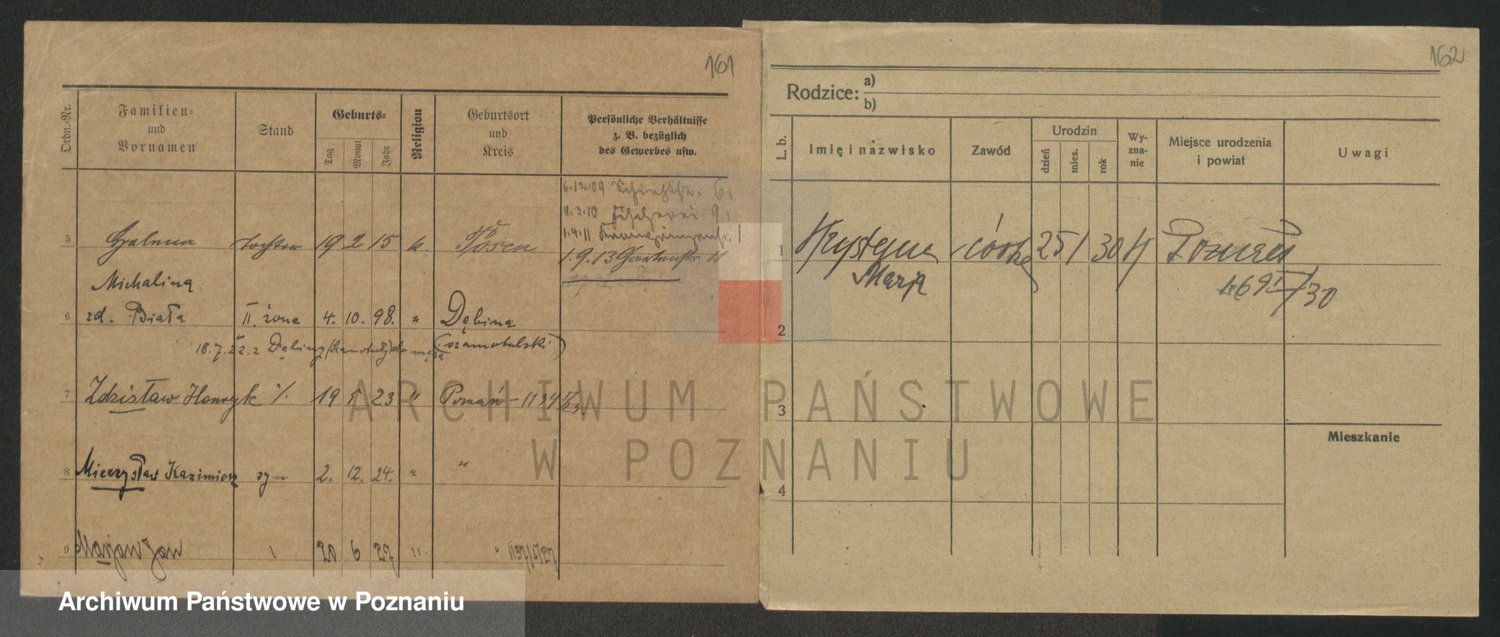 161
Ordn.-Nr.
Familien-
und
Vornamen
Stand
Geburts-
Tag
Monat
Jahr
Religion
Geburtsort
und
Kreis
Persönliche Verhältnisse
z. B. bezüglich
des Gewerbes usw.
6.12.09
8.3.10 Fischerei 9.
1.4.11
1.9.13 Gartenstr
5 Halina Tochter 19 2 15 k. Posen
Michalina
6 zd. Biała II. żona 4. 10. 98. " Dębina
18.7.22. z Dębiny (Szamotuły) do męża (szamotulski)
7 Zdzisław Henryk /. 19 5 23 " Poznań - 1134
8 Mieczysław Kazimierz syn 2. 12. 24. " "
9 Marjan Jan 20 6 27 " "
162
Rodzice: a)
b)
L. b.
Imię i nazwisko
Zawód
Urodzin
dzień
mies.
rok
Wy-
zna-
nie
Miejsce urodzenia
i powiat
Uwagi
1 Krystyna córka 25 1 30 Poznań
Marja
2
3
4
Mieszkanie
ARCHIWUM PAŃSTWOWE
W POZNANIU
Archiwum Państwowe w Poznaniu